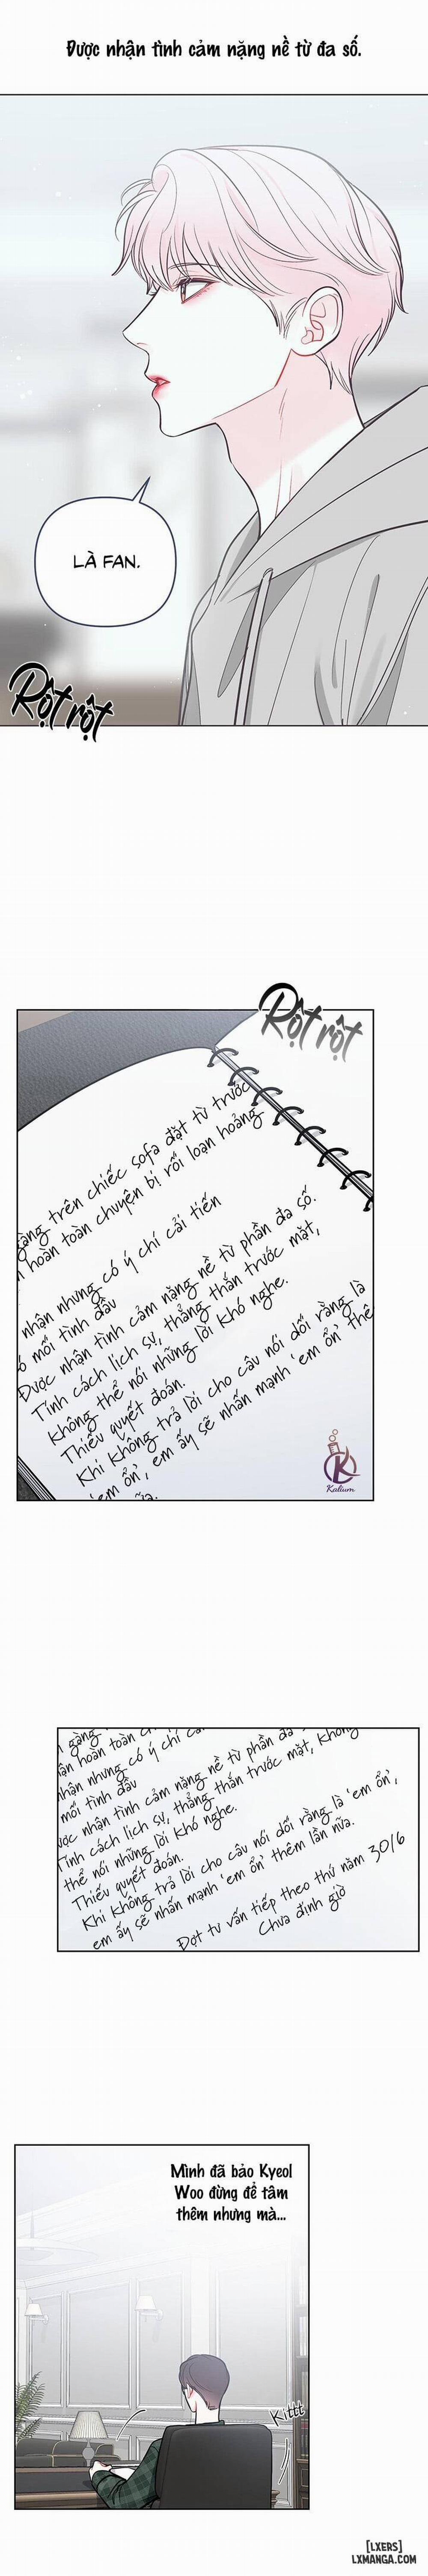 Được nhận tình cảm nặng nề từ đa số.
LÀ FAN.
Rột rột
Rột rột
gàng trên chiếc sofa đặt từ trước
hoàn toàn chuyện bị rối loạn hoảng
nhận nhưng có ý chí cải tiến
mối tình đầu
Được nhận tình cảm nặng nề từ phần đa số.
Tính cách lịch sự, thẳng thắn trước mặt,
Không thể nói những lời khó nghe.
Thiếu quyết đoán.
Khi không trả lời cho câu nói dối rằng là
'em ổn', em ấy sẽ nhấn mạnh 'em ổn' thê
nữa.
K
Kalium
gàng
hoàn toàn
nhận nhưng có ý chí cả
mối tình đầu
ược nhận tình cảm nặng nề từ phần đa
Tính cách lịch sự, thẳng thắn trước mặt, Không
thể nói những lời khó nghe.
Thiếu quyết đoán.
Khi không trả lời cho câu nói dối rằng là 'em ổn',
em ấy sẽ nhấn mạnh 'em ổn' thêm lần nữa.
Đợt tư vấn tiếp theo thứ năm 30/6
Chưa định giờ
Mình đã bảo Kyeol
Woo đừng để tâm
thêm nhưng mà...
Kittt
[LXERS]
LXMANGA.COM